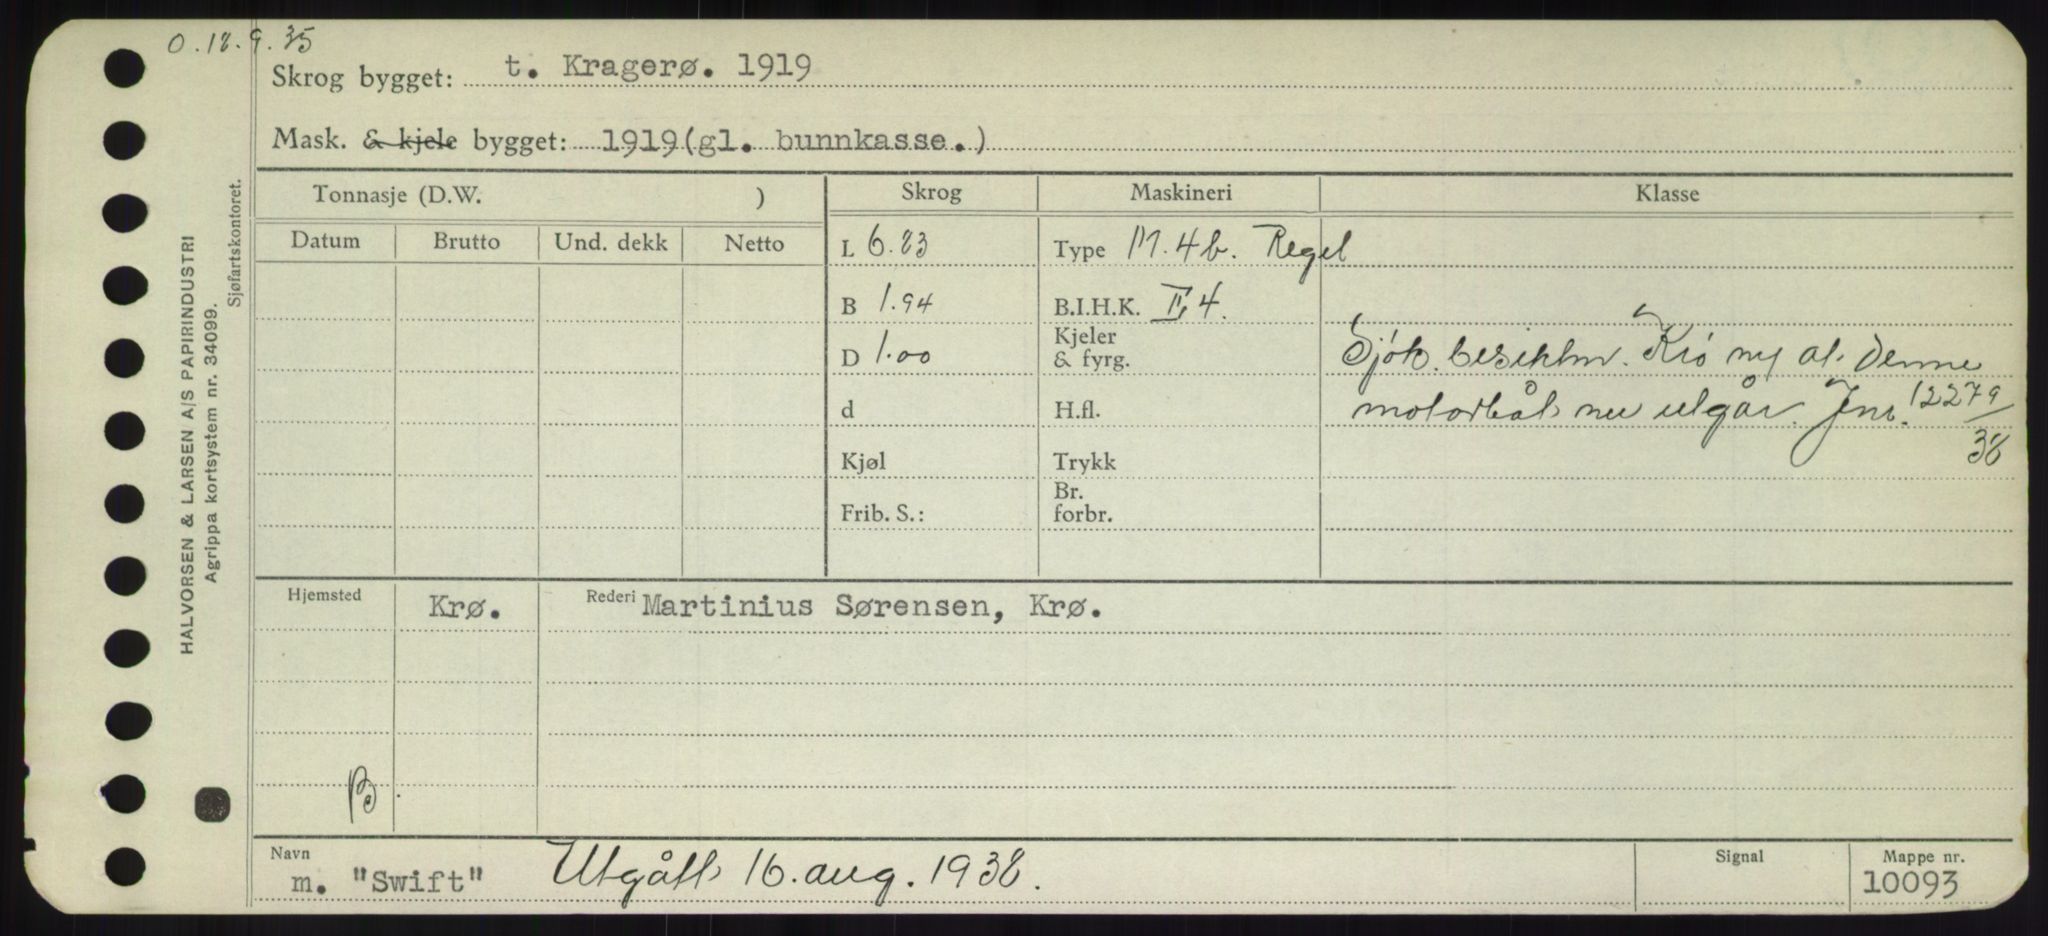 O. 18.9.35
Skrog bygget: t. Kragerø. 1919
Mask. & kjele bygget: 1919(gl. bunnkasse.)
Tonnasje (D.W. )
Skrog
Maskineri
Klasse
Datum
Brutto
Und. dekk
Netto
L 6.83
Type M. 4b. Regel
B 1.94
B.I.H.K. II, 4.
D 1.00
Kjeler
& fyrg.
Sjøk. besiktm. Krø ny at denne
d
H.fl.
motorbåt nu utgår. Jnr. 12279/38
Kjøl
Trykk
Frib. S.:
Br.
forbr.
Hjemsted
Krø.
Rederi Martinius Sørensen, Krø.
Navn
m. "Swift"
Utgått 16. aug. 1938.
Signal
Mappe nr.
10093
HALVORSEN & LARSEN A/S PAPIRINDUSTRI
Agrippa kortsystem nr. 34099.
Sjøfartskontoret.